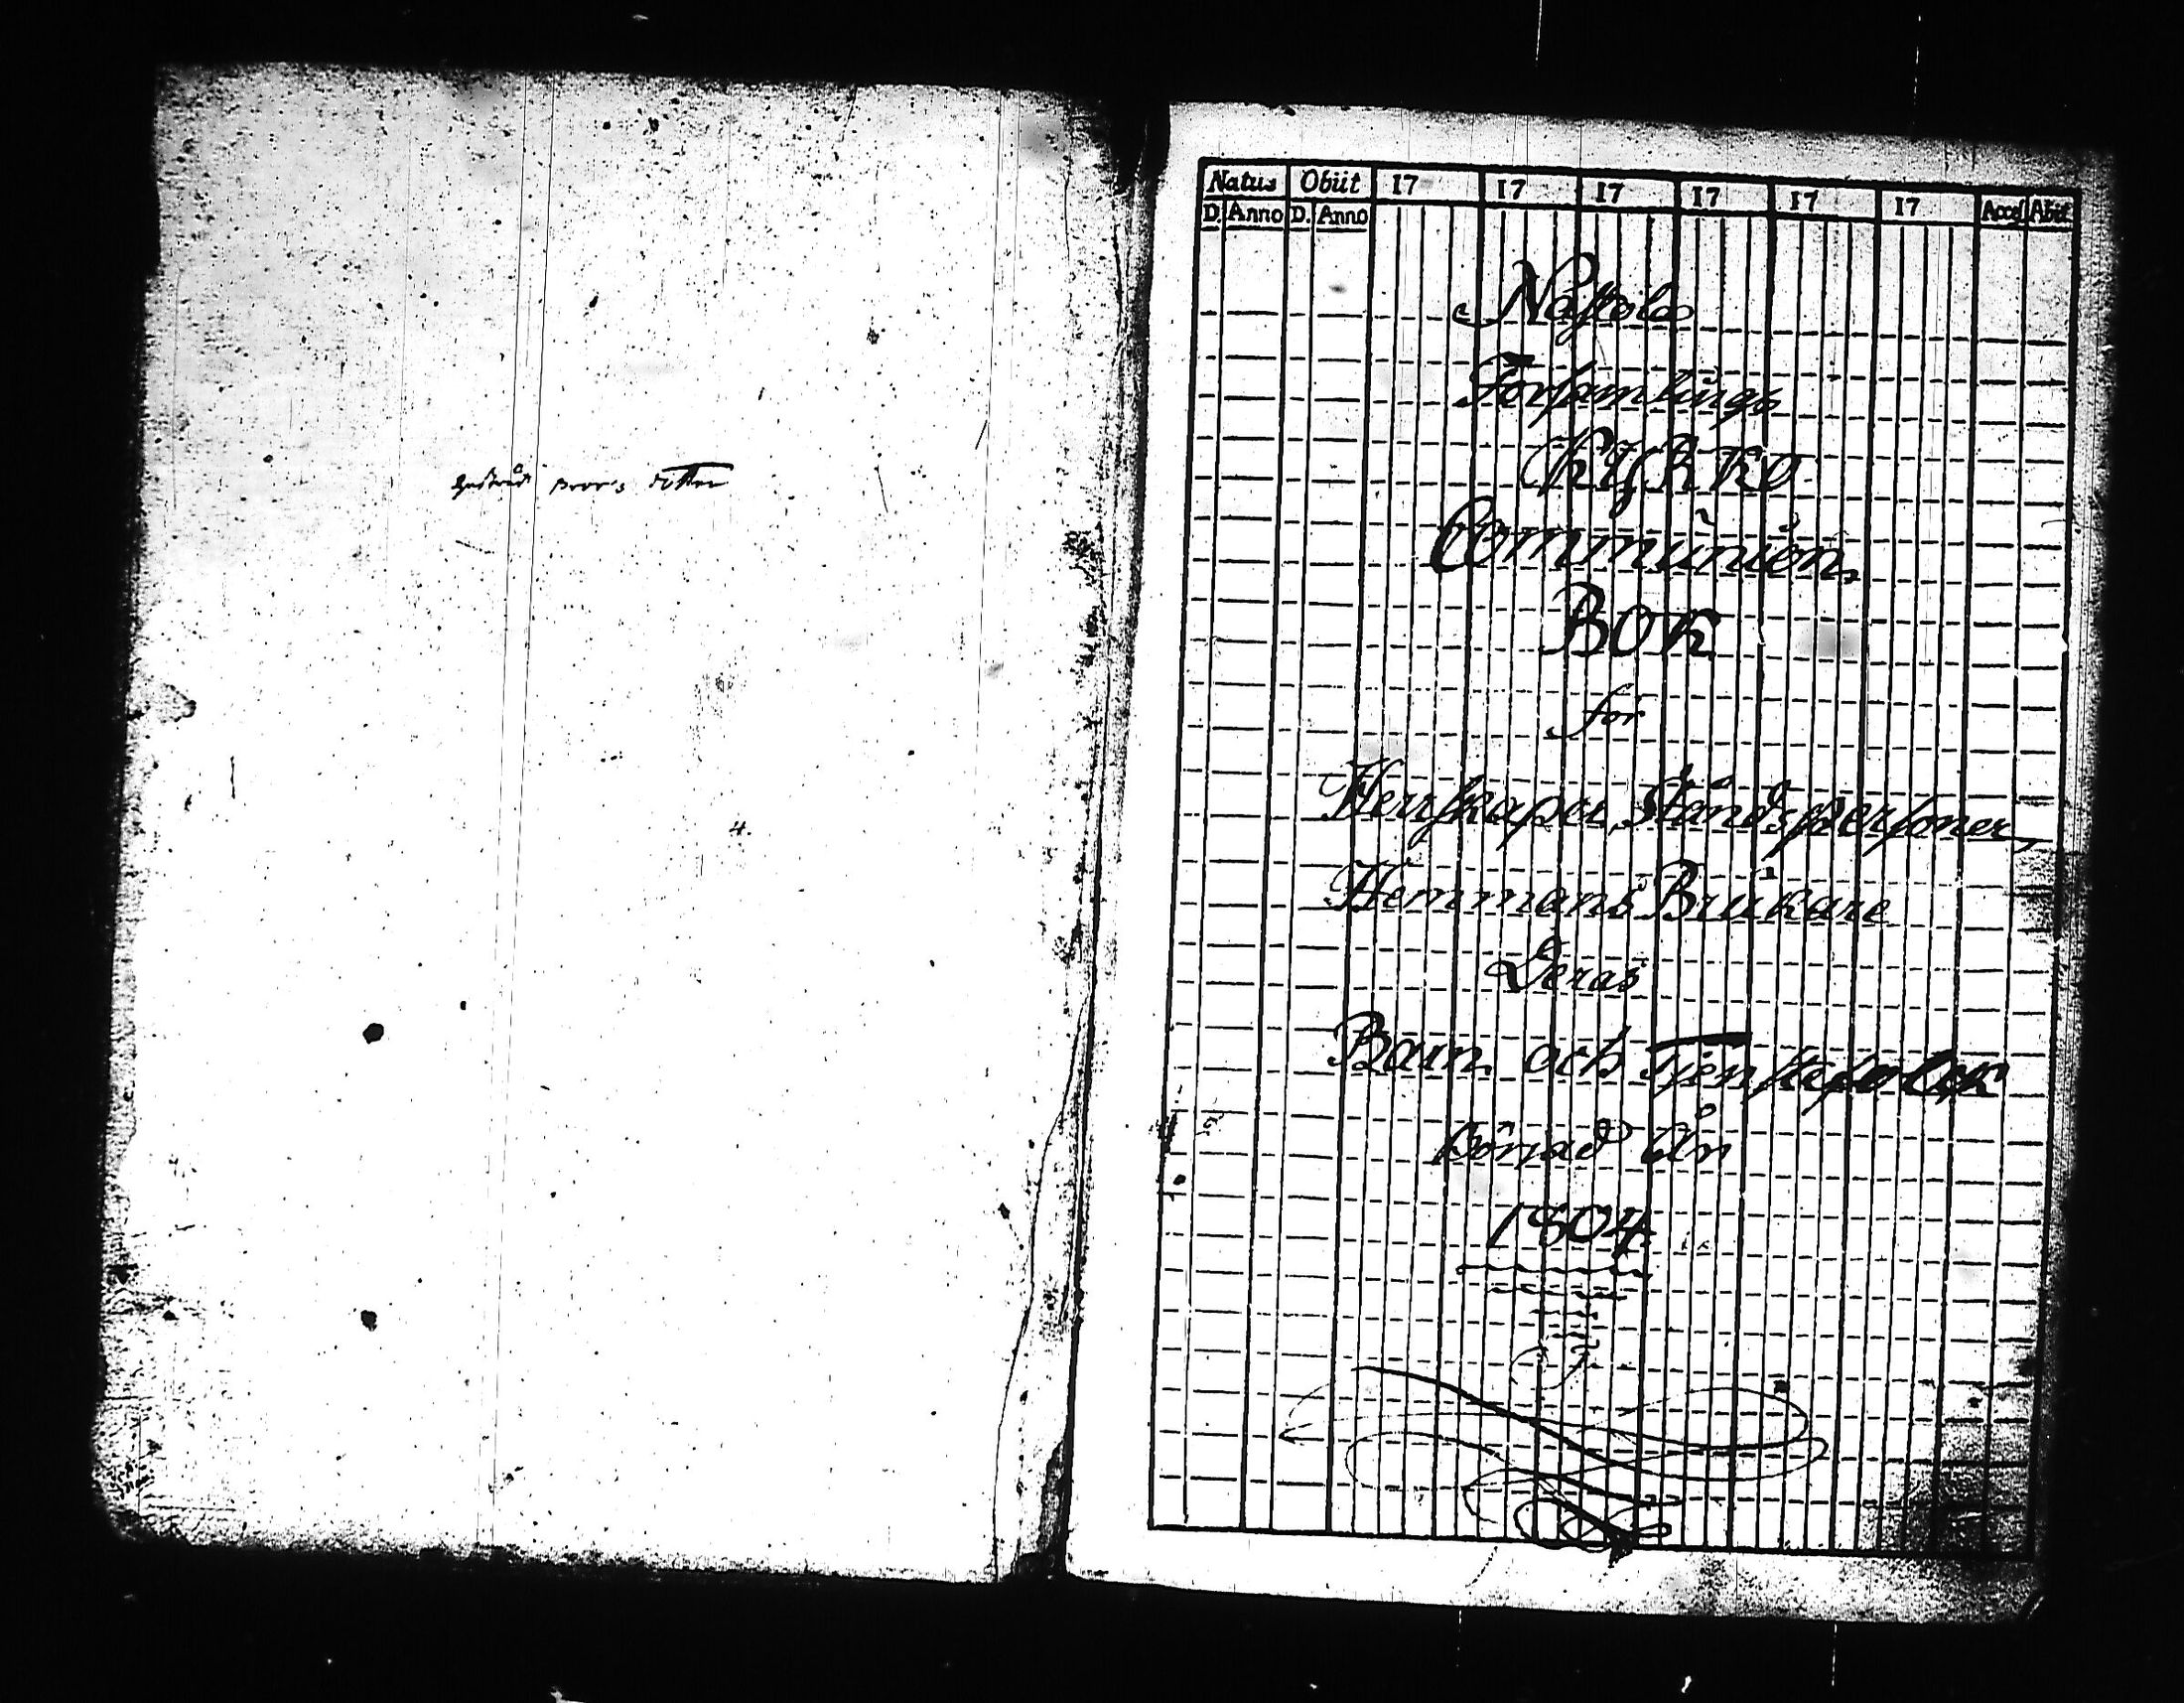 Brors dotter
4.
Natus Obiit 17 17 17 17 17 17 Access Abiit
D. Anno D. Anno
Församlings
Kyrko
Communion
Bok
för
Herrskaper, Ståndspersoner,
Hemmans Brukare
Deras
Barn och Tjenstefolck
Börjad År
1804